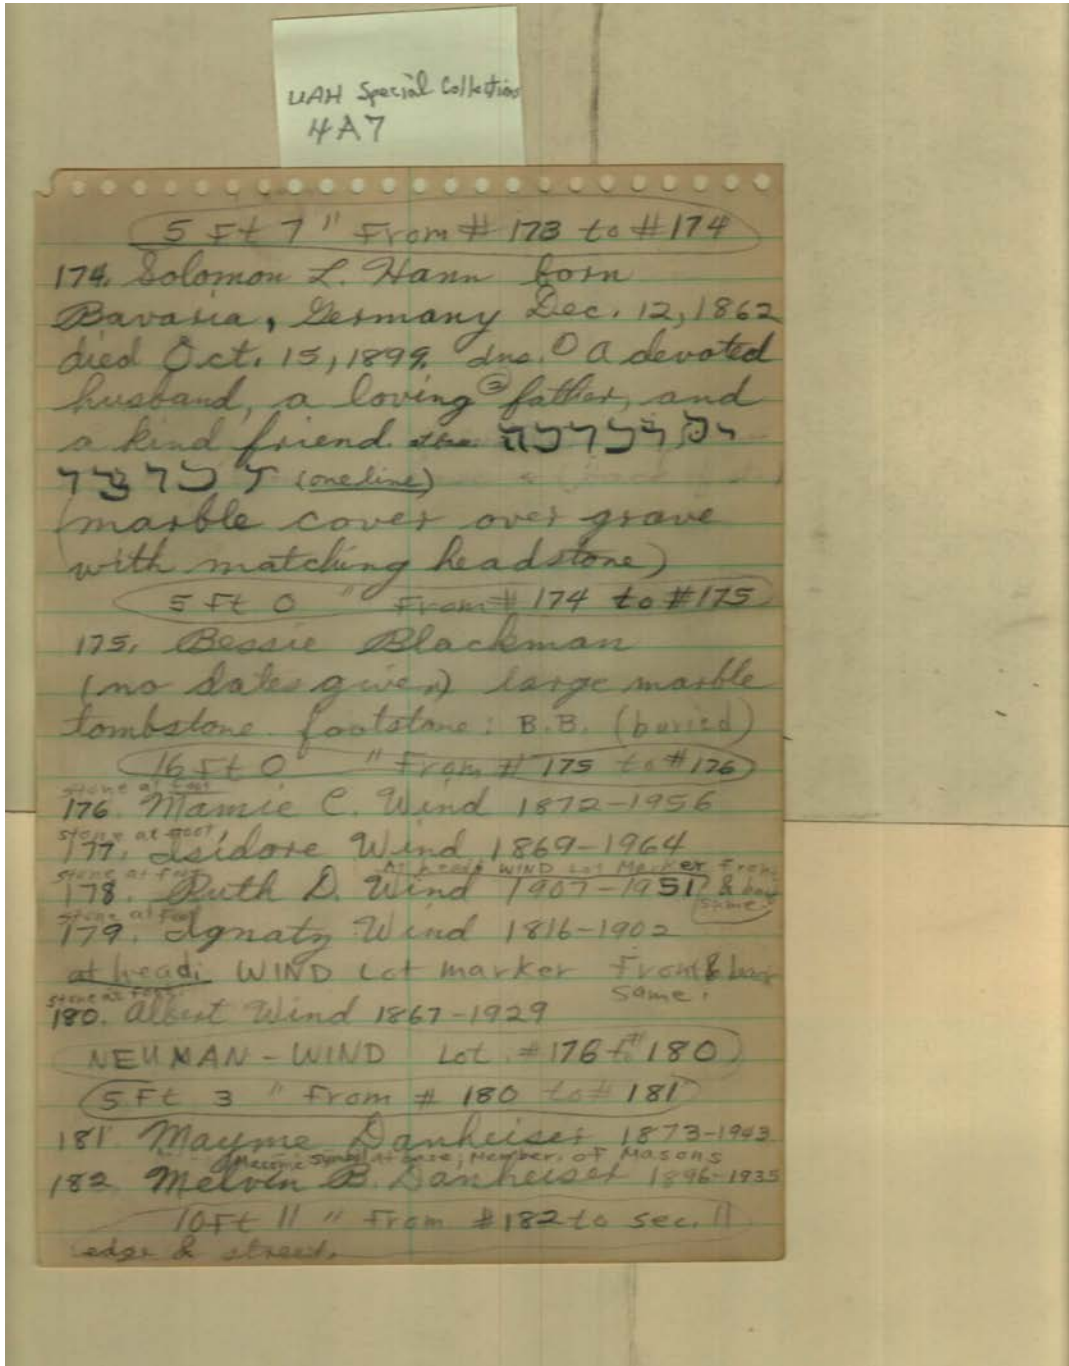 UAH Special Collections
4A7
5 Ft 7 " From # 173 to # 174
174. Solomon L. Hann born
Bavaria, Germany Dec. 12, 1862
died Oct. 15, 1899. Ins. ① A devoted
husband, a loving ② father, and
a kind friend.
(one line)
(marble cover over grave
with matching headstone)
5 Ft 0 " From # 174 to #175
175. Bessie Blackman
(no dates given) large marble
tombstone. footstone: B.B. (buried)
16 Ft 0 " From # 175 to #176
stone at foot
176. Mamie C. Wind 1872-1956
stone at foot
177. Isidore Wind 1869-1964
stone at foot At head WIND Lot Marker Front
178. Ruth D. Wind 1907-1951 & back
same.
stone at foot
179. Ignatz Wind 1816-1902
at head: WIND Lot marker Front & back
same.
stone at foot
180. Albert Wind 1867-1929
NEUMAN - WIND Lot #176 to #180
5 Ft 3 " From # 180 to # 181
181. Mayme Danheiser 1873-1943
Masonic Symbol at base; Member of Masons
182. Melvin B. Danheiser 1896-1935
10 Ft 11 " From #182 to sec. 11
edge & street.